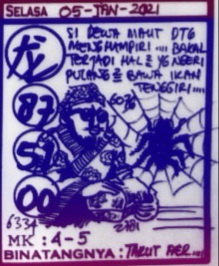 SELASA 05-JAN-2021
龙
SI DEWA MAUT DTG
MENGHAMPIRI .... BAKAL
TERJADI HAL2 YG NGERI
PULANG2 BAWA IKAN
TENGGIRI....
87
5
00
6334
2781
MK : 4-5
BINATANGNYA :